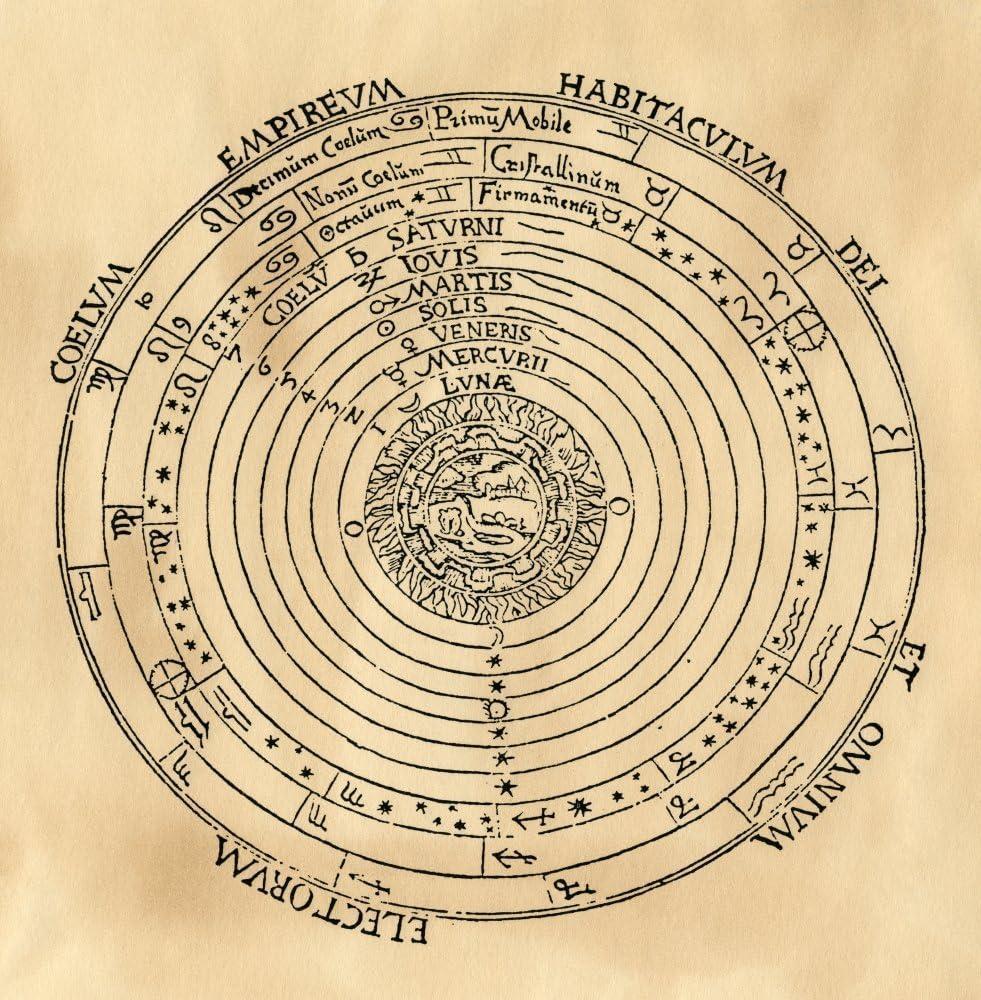 COELVM EMPIREVM HABITACVLVM DEI ET OMNIVM ELECTORVM
Decimũm Coelũm ♋ Primũ Mobile ♊
Nonũ Coelum ♊ Cristallinũm ♉
Octauum ♊ Firmamentũ ♉
COELV̄ ♄ SATVRNI
♃ IOVIS
♂ MARTIS
☉ SOLIS
♀ VENERIS
☿ MERCVRII
☽ LVNÆ
10
9
8
7
6
5
4
3
2
1